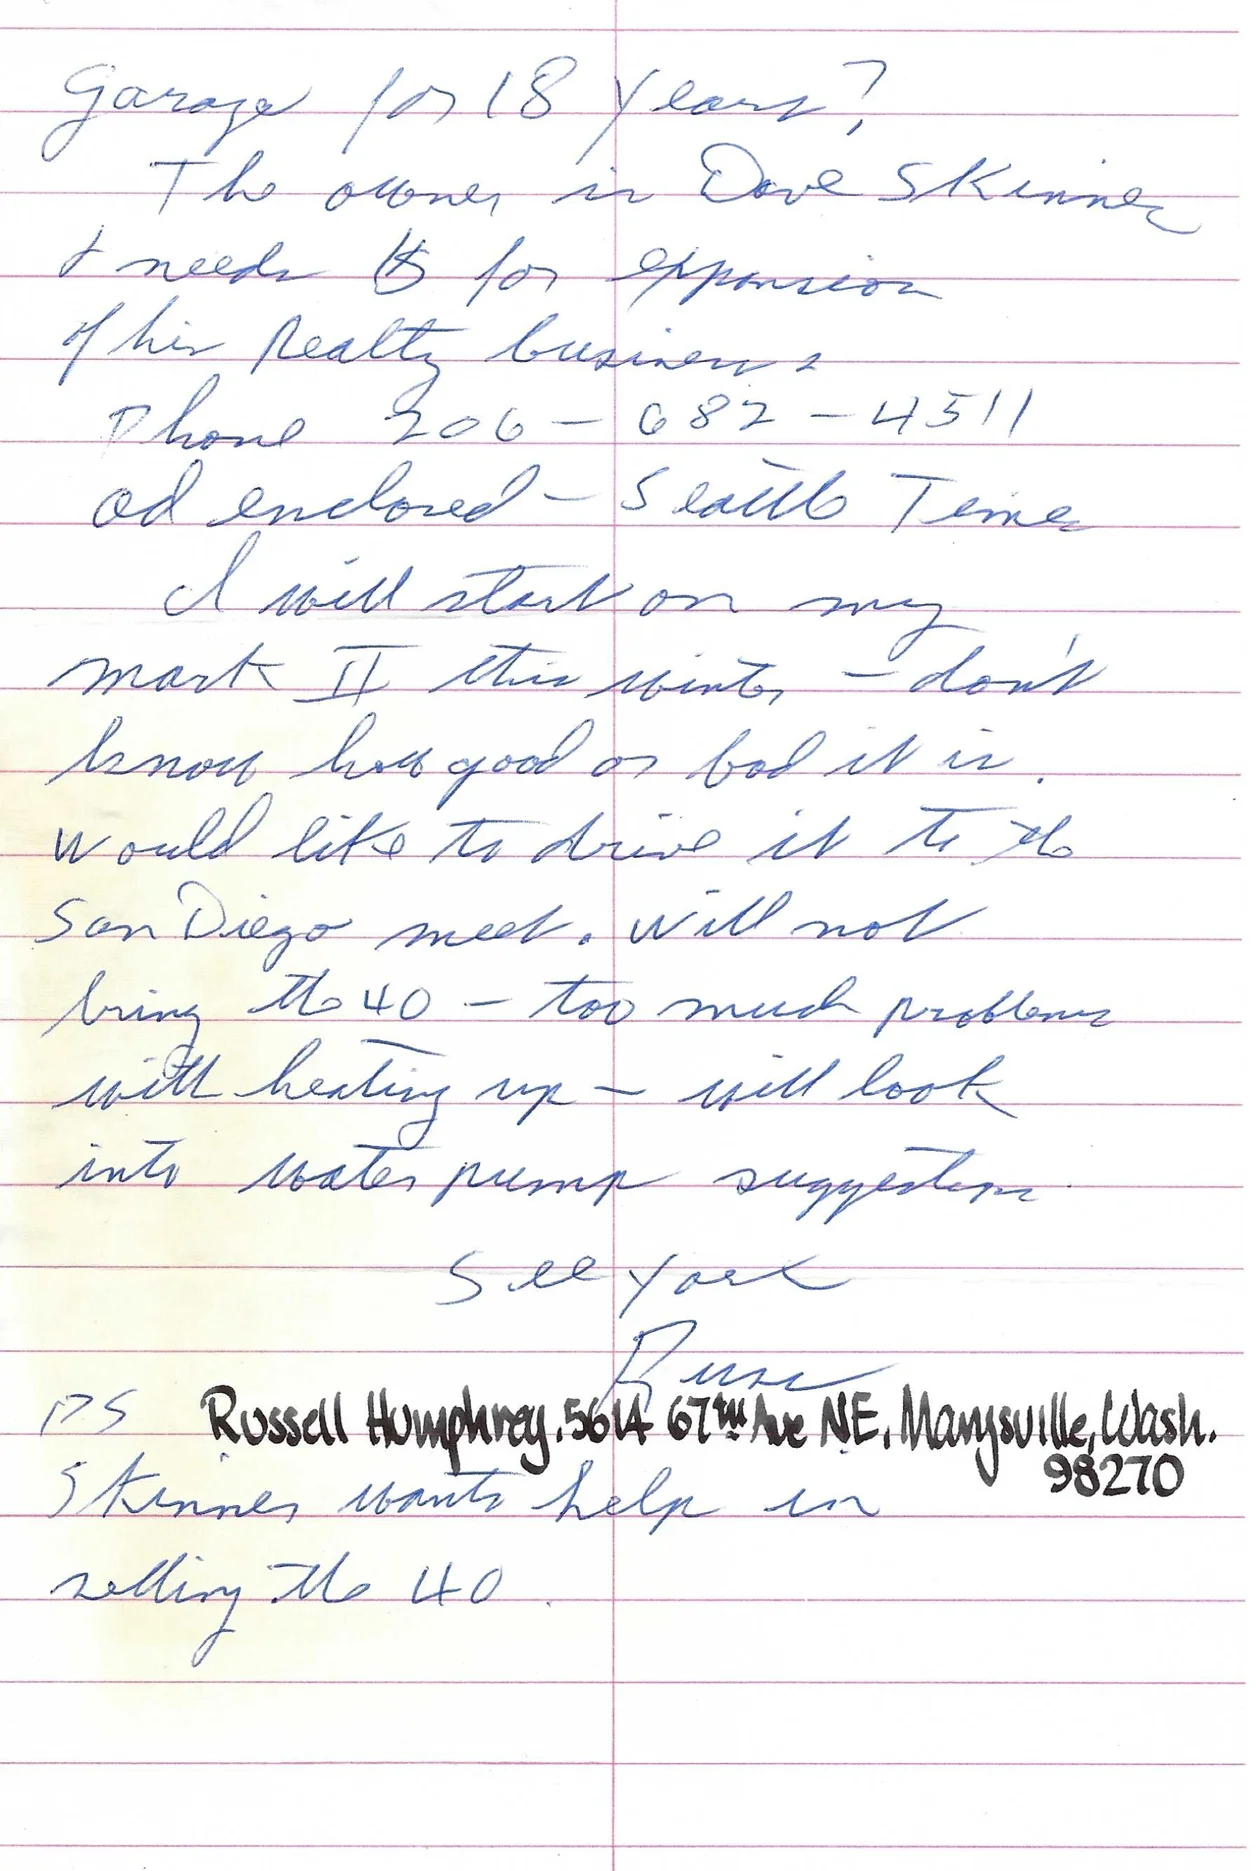 Garage for 18 years?
The owner is Dave Skinner
& needs $ for expansion
of his Realty business
Phone 206-682-4511
ad enclosed - Seattle Times
I will start on my
mark II this winter - don't
know how good or bad it is.
Would like to drive it to the
San Diego meet. Will not
bring the 40 - too much problems
with heating up - will look
into water pump suggestions
See York
Russ
PS Russell Humphrey. 5614 67th Ave NE. Marysville, Wash.
98270
Skinner wants help in
selling the 40.